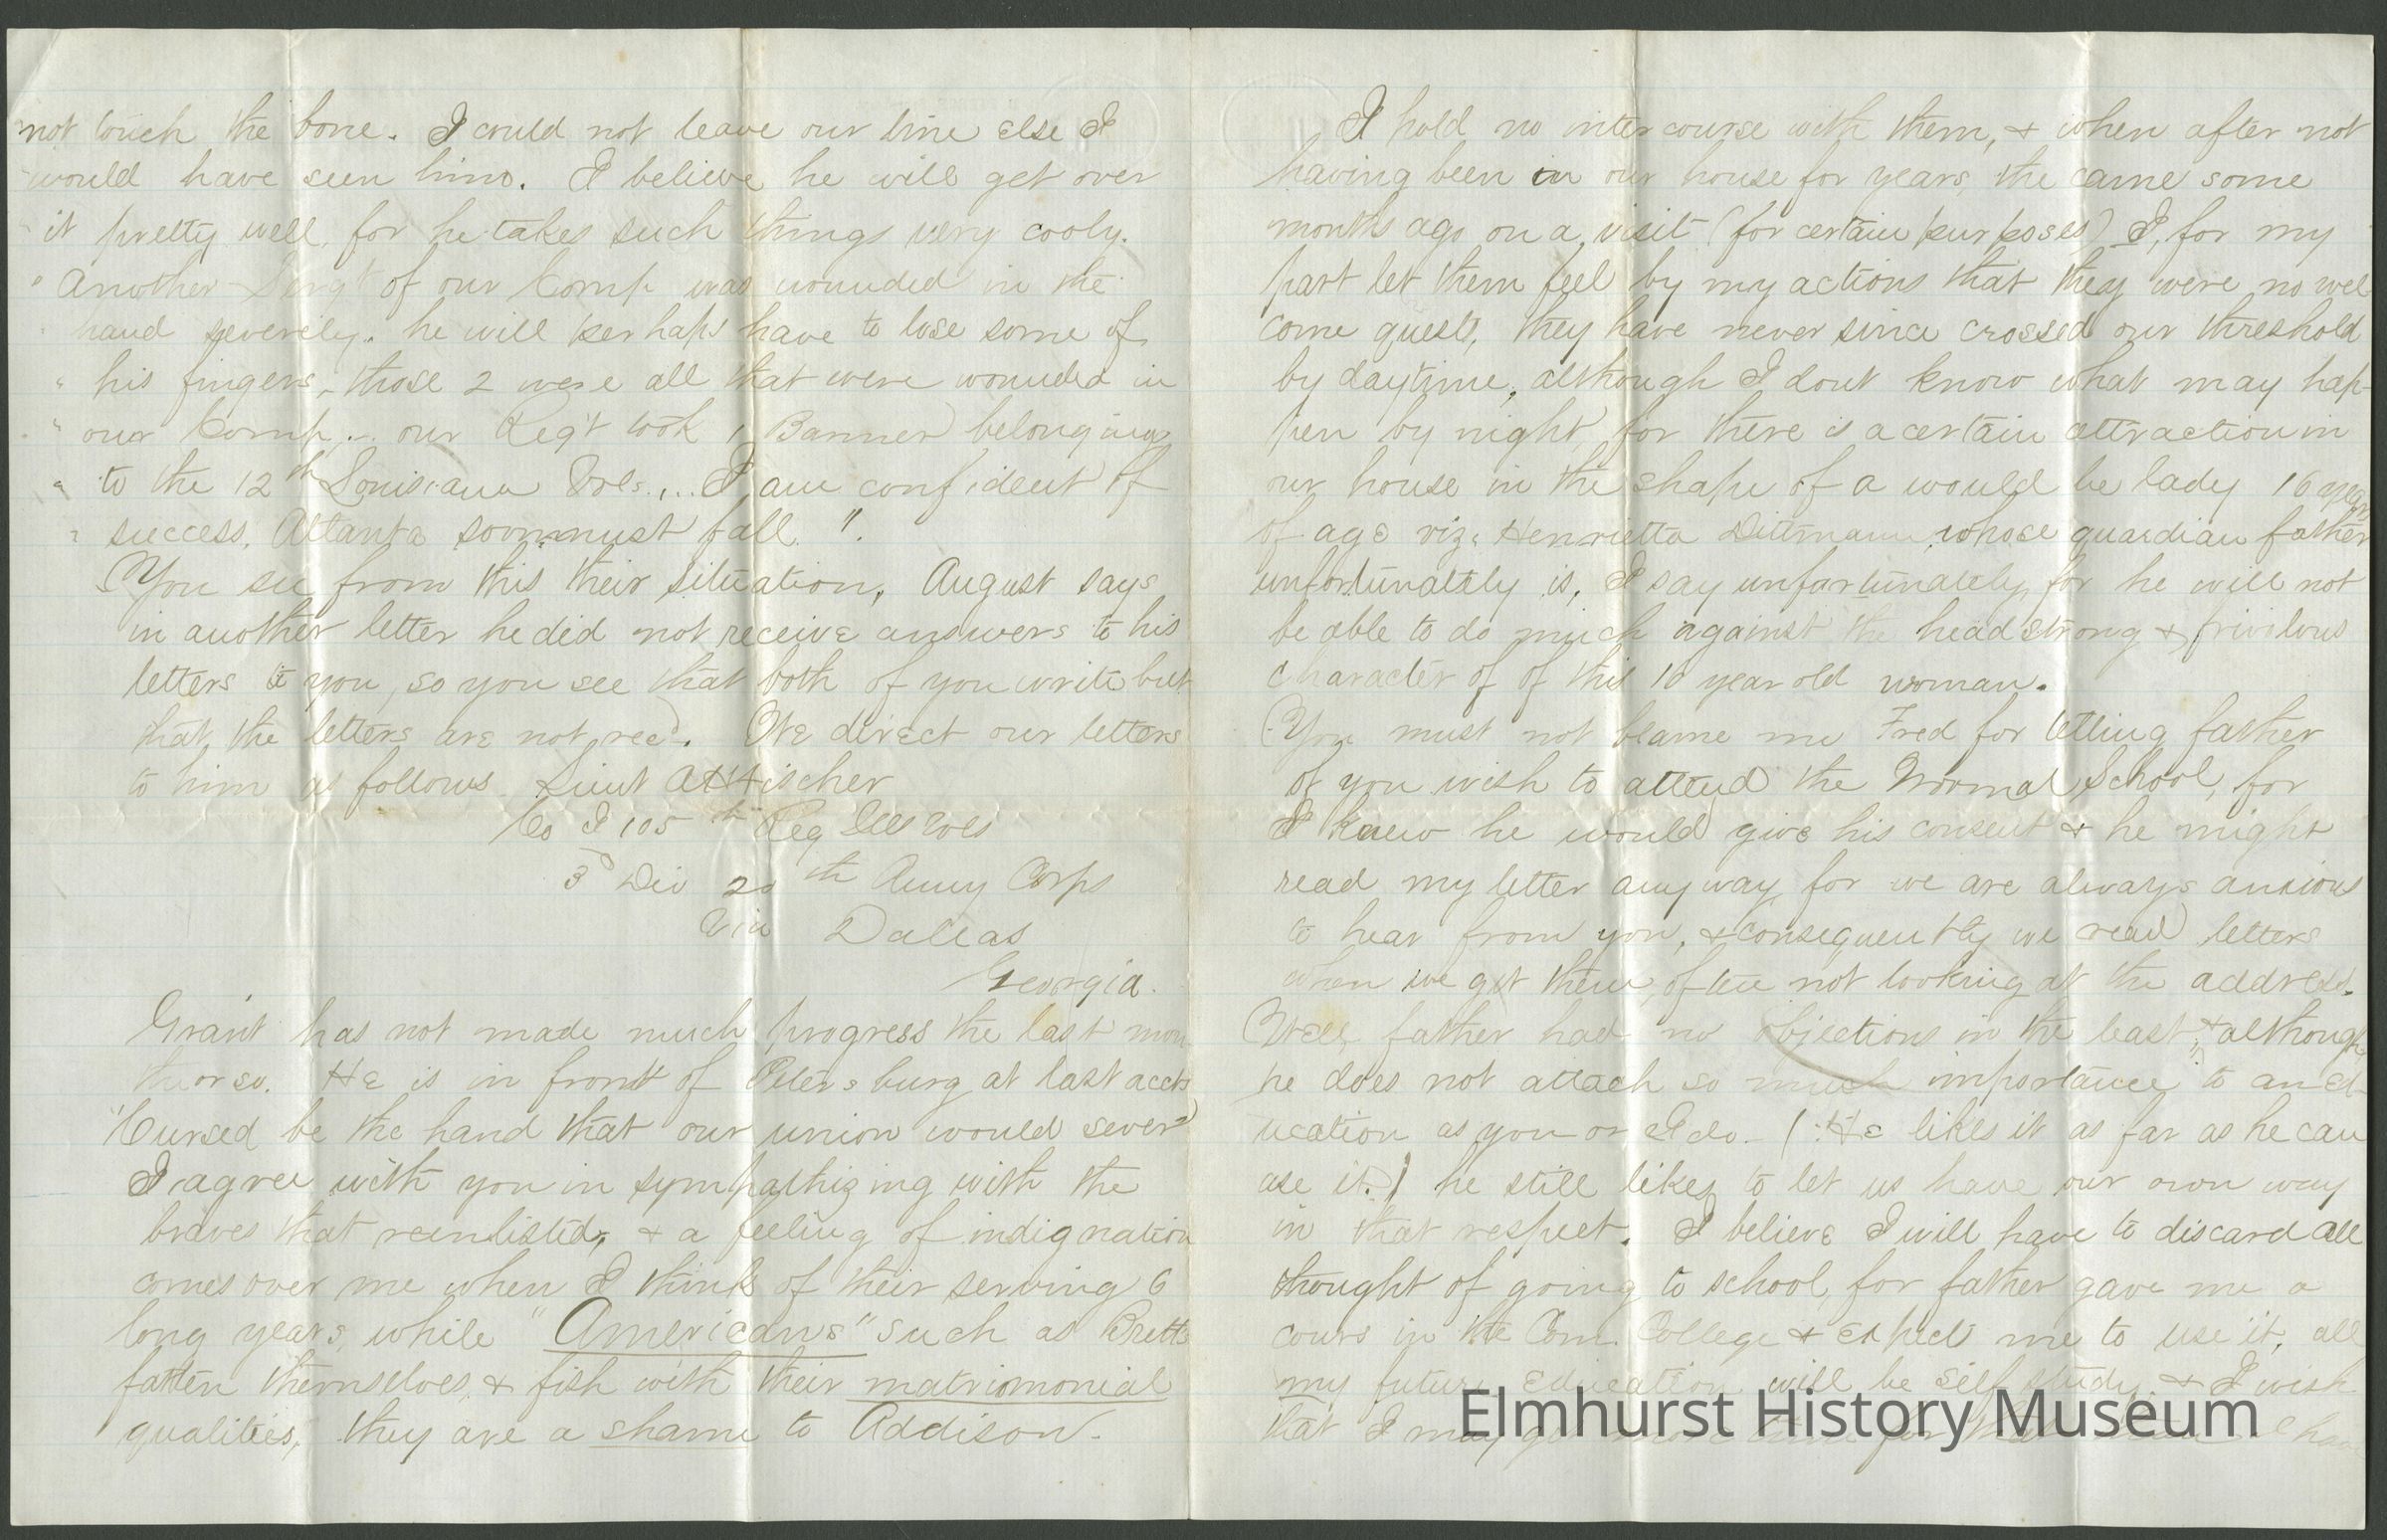 not touch the bone. I could not leave our line else I
would have seen him. I believe he will get over
it pretty well, for he takes such things very cooly.
" Another Sergt of our Comp was wounded in the
hand severely. he will perhaps have to lose some of
" his fingers, those 2 were all that were wounded in
" our Comp... our Reg't took 1 Banner belonging
" to the 12th Louisiana Vols... I am confident of
" success. Atlanta soon must fall. ".
You see from this their situation, August says
in another letter he did not receive answers to his
letters to you, so you see that both of you write but
that the letters are not recd. We direct our letters
to him as follows. Lieut A H Fischer
Co I 105th Reg Ills Vols
3d Div 20th Army Corps
Via Dallas
Georgia.
Grant has not made much progress the last mon
th or so. He is in front of Petersburg at last accts
"Cursed be the hand that our union would sever"
I agree with you in sympathizing with the
braves that reenlisted, & a feeling of indignation
comes over me when I think of their serving 6
long years, while "Americans" such as
fatten themselves, & fish with their matriomonial
qualities, they are a shame to Addison.
I hold no intercourse with them, & when after not
having been in our house for years, the came some
months ago on a visit (for certain purposes) I, for my
part let them feel by my actions that they were no wel
come guests, they have never since crossed our threshold
by daytime, although I dont know what may hap-
pen by night, for there is a certain attraction in
our house in the shape of a would be lady 16 years
of age viz: Henrietta Dittmann whose guardian father
unfortunately is, I say unfortunately, for he will not
be able to do much against the headstrong & frivilous
character of of this 16 year old woman.
You must not blame me Fred for letting father
of you wish to attend the Normal School, for
I knew he would give his consent & he might
read my letter anyway, for we are always anxious
to hear from you, & consequently we read letters
when we get them, often not looking at the address.
Well, father had no objections in the least, & although
he does not attach so much importance to an ed-
ucation as you or I do. (He likes it as far as he can
use it.) he still likes to let us have our own way
in that respect. I believe I will have to discard all
thought of going to school, for father gave me a
cours in the Com. College & expects me to use it, all
my future education will be self study, & I wish
that I may
Elmhurst History Museum